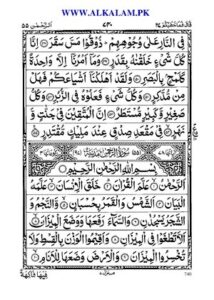 WWW.ALKALAM.PK
فِي النَّارِ عَلٰى وُجُوْهِهِمْ ذُوْقُوْا مَسَّ سَقَرَ اِنَّا
كُلَّ شَيْءٍ خَلَقْنٰهُ بِقَدَرٍ وَمَآ اَمْرُنَآ اِلَّا وَاحِدَةٌ
كَلَمْحٍۭ بِالْبَصَرِ وَلَقَدْ اَهْلَكْنَآ اَشْيَاعَكُمْ فَهَلْ
مِنْ مُّدَّكِرٍ وَكُلُّ شَيْءٍ فَعَلُوْهُ فِي الزُّبُرِ وَكُلُّ
صَغِيْرٍ وَّكَبِيْرٍ مُّسْتَطَرٌ اِنَّ الْمُتَّقِيْنَ فِيْ جَنّٰتٍ وَّ
نَهَرٍ فِيْ مَقْعَدِ صِدْقٍ عِنْدَ مَلِيْكٍ مُّقْتَدِرٍ
بِسْمِ اللّٰهِ الرَّحْمٰنِ الرَّحِيْمِ
اَلرَّحْمٰنُ عَلَّمَ الْقُرْاٰنَ خَلَقَ الْاِنْسَانَ عَلَّمَهُ
الْبَيَانَ اَلشَّمْسُ وَالْقَمَرُ بِحُسْبَانٍ وَّالنَّجْمُ وَ
الشَّجَرُ يَسْجُدٰنِ وَالسَّمَآءَ رَفَعَهَا وَوَضَعَ الْمِيْزَانَ
اَلَّا تَطْغَوْا فِي الْمِيْزَانِ وَاَقِيْمُوا الْوَزْنَ بِالْقِسْطِ وَلَا
تُخْسِرُوا الْمِيْزَانَ وَالْاَرْضَ وَضَعَهَا لِلْاَنَامِ
فِيْهَا فَاكِهَةٌ